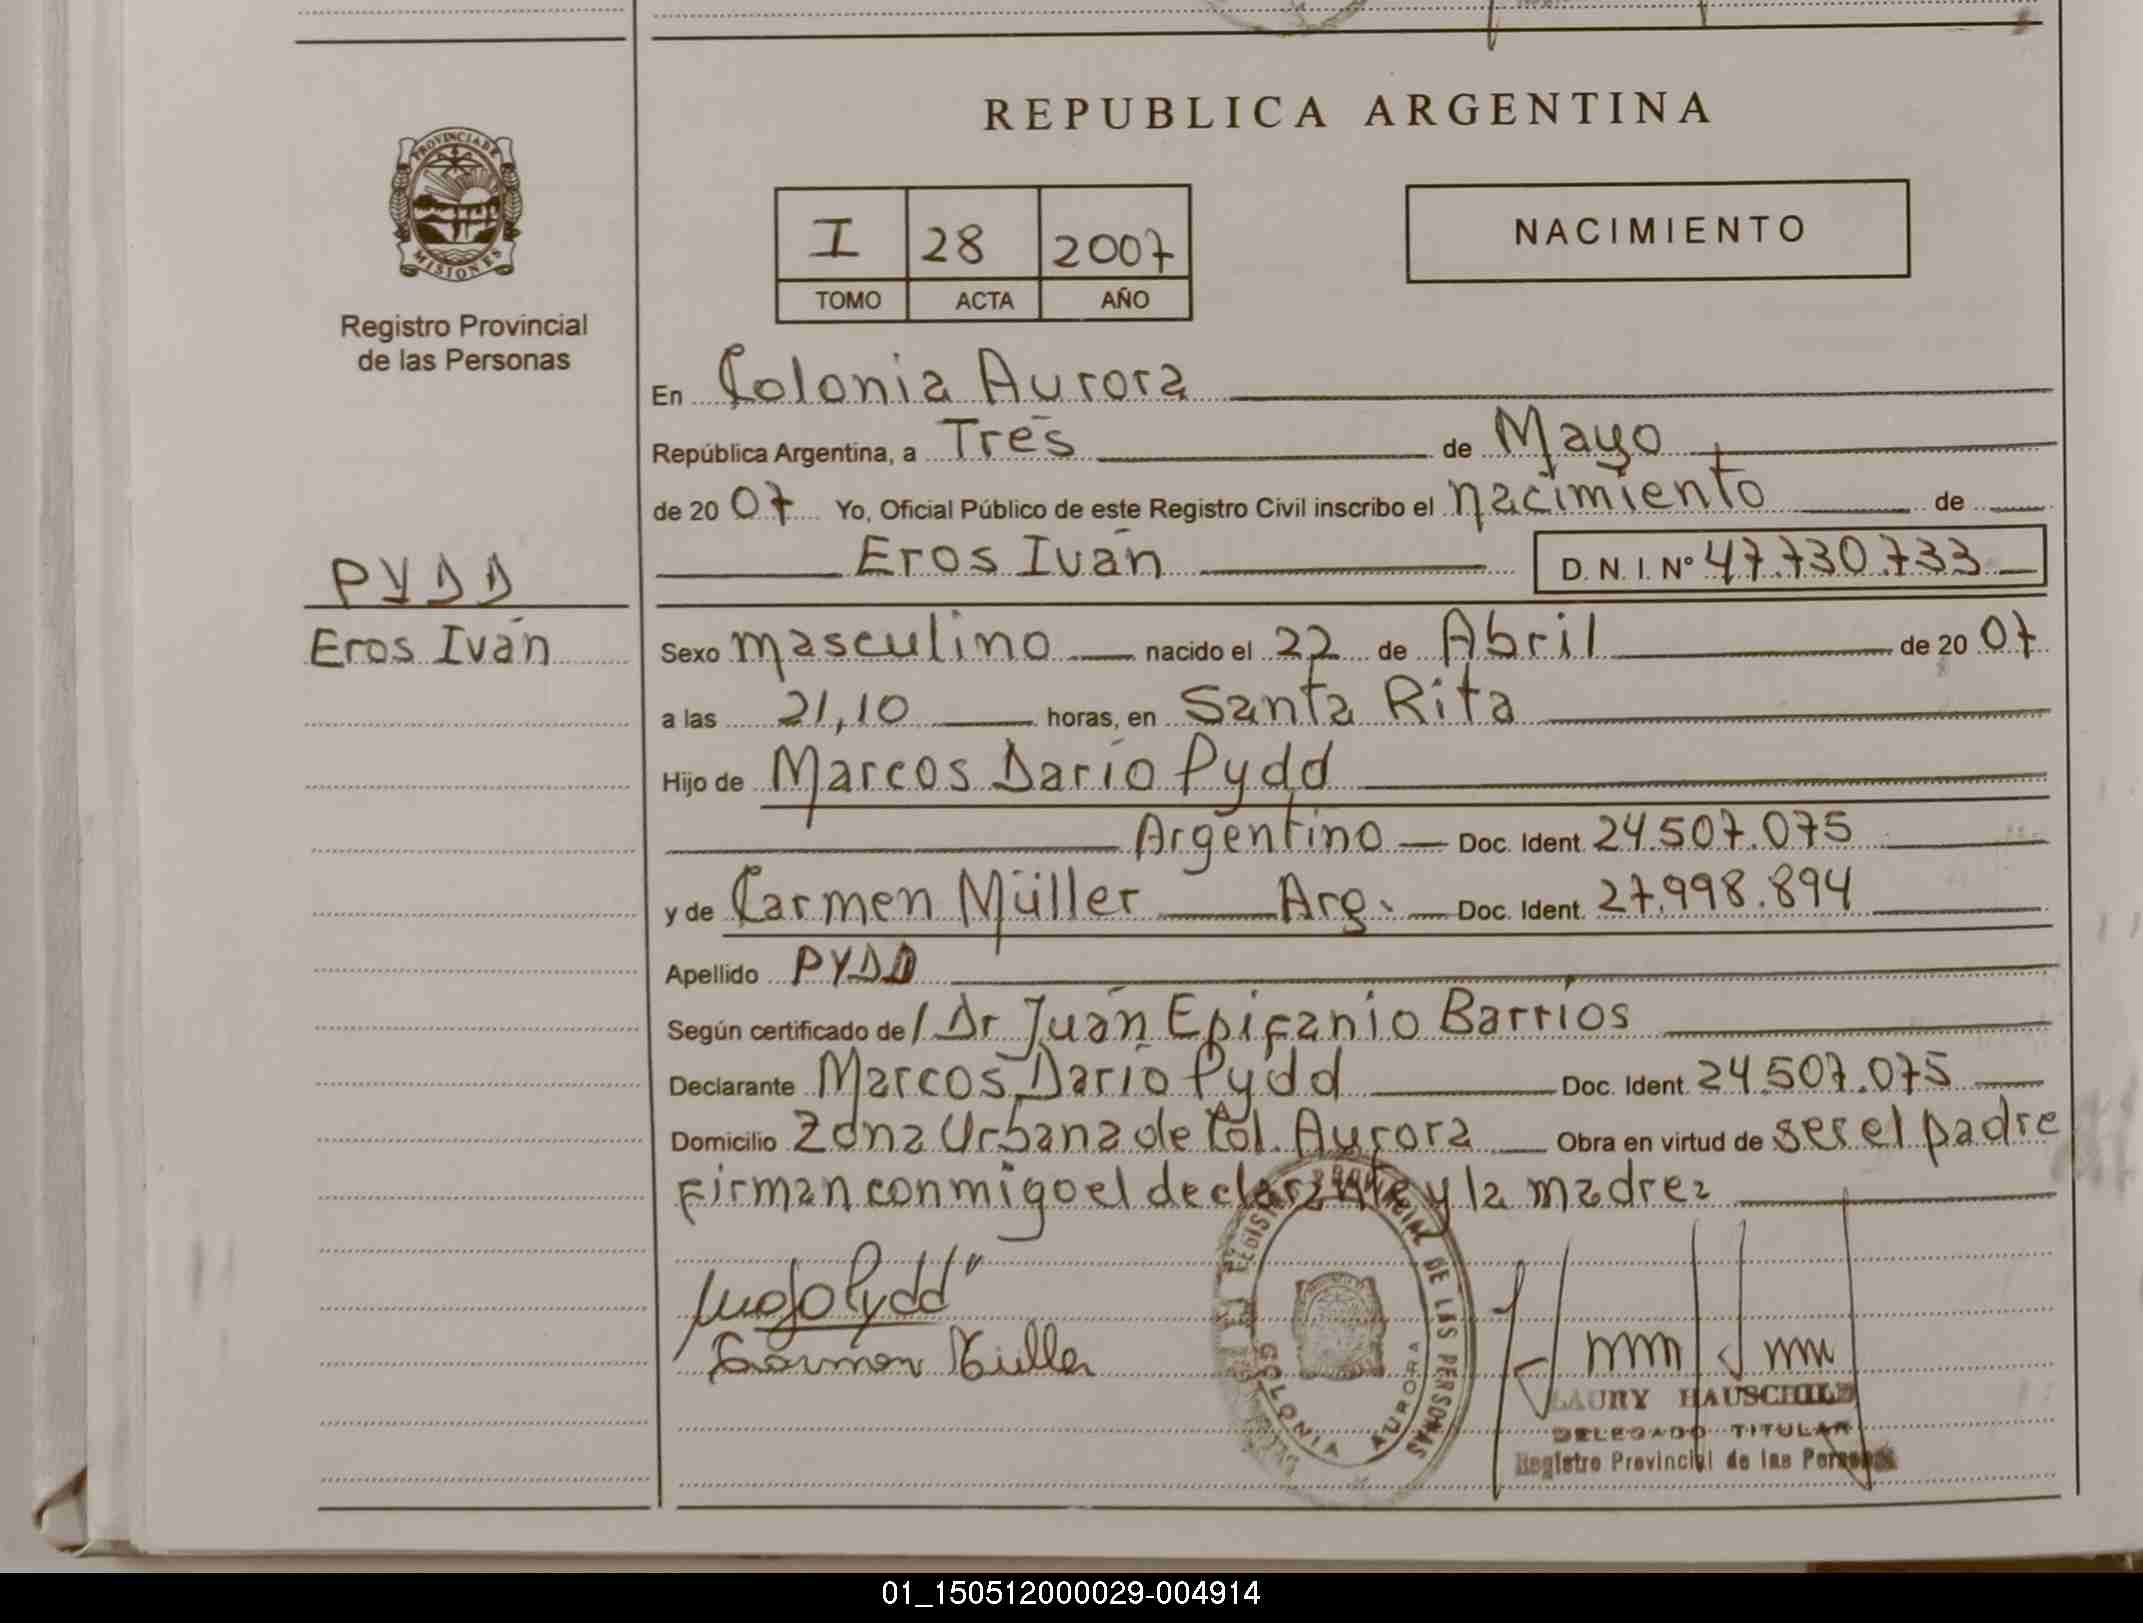 REPUBLICA ARGENTINA
PROVINCIA DE
MISIONES
Registro Provincial
de las Personas
I 28 2007
TOMO ACTA AÑO
NACIMIENTO
En Colonia Aurora
República Argentina, a Tres de Mayo
de 2007 Yo, Oficial Público de este Registro Civil inscribo el nacimiento de
Eros Iván D. N. I. Nº 47.730.733
PYDD
Eros Iván
Sexo masculino nacido el 22 de Abril de 2007
a las 21,10 horas, en Santa Rita
Hijo de Marcos Darío Pydd
Argentino Doc. Ident. 24.507.075
y de Carmen Müller Arg. Doc. Ident. 27.998.894
Apellido PYDD
Según certificado de/ Dr Juán Epifanio Barrios
Declarante Marcos Darío Pydd Doc. Ident. 24.507.075
Domicilio Zona Urbana de Col. Aurora Obra en virtud de ser el padre
firman conmigo el declarante y la madre
Pydd
Carmen Müller
REGISTRO PROVINCIAL DE LAS PERSONAS
COLONIA AURORA
LAURY HAUSCHILD
DELEGADO TITULAR
Registro Provincial de las Personas
01_150512000029-004914